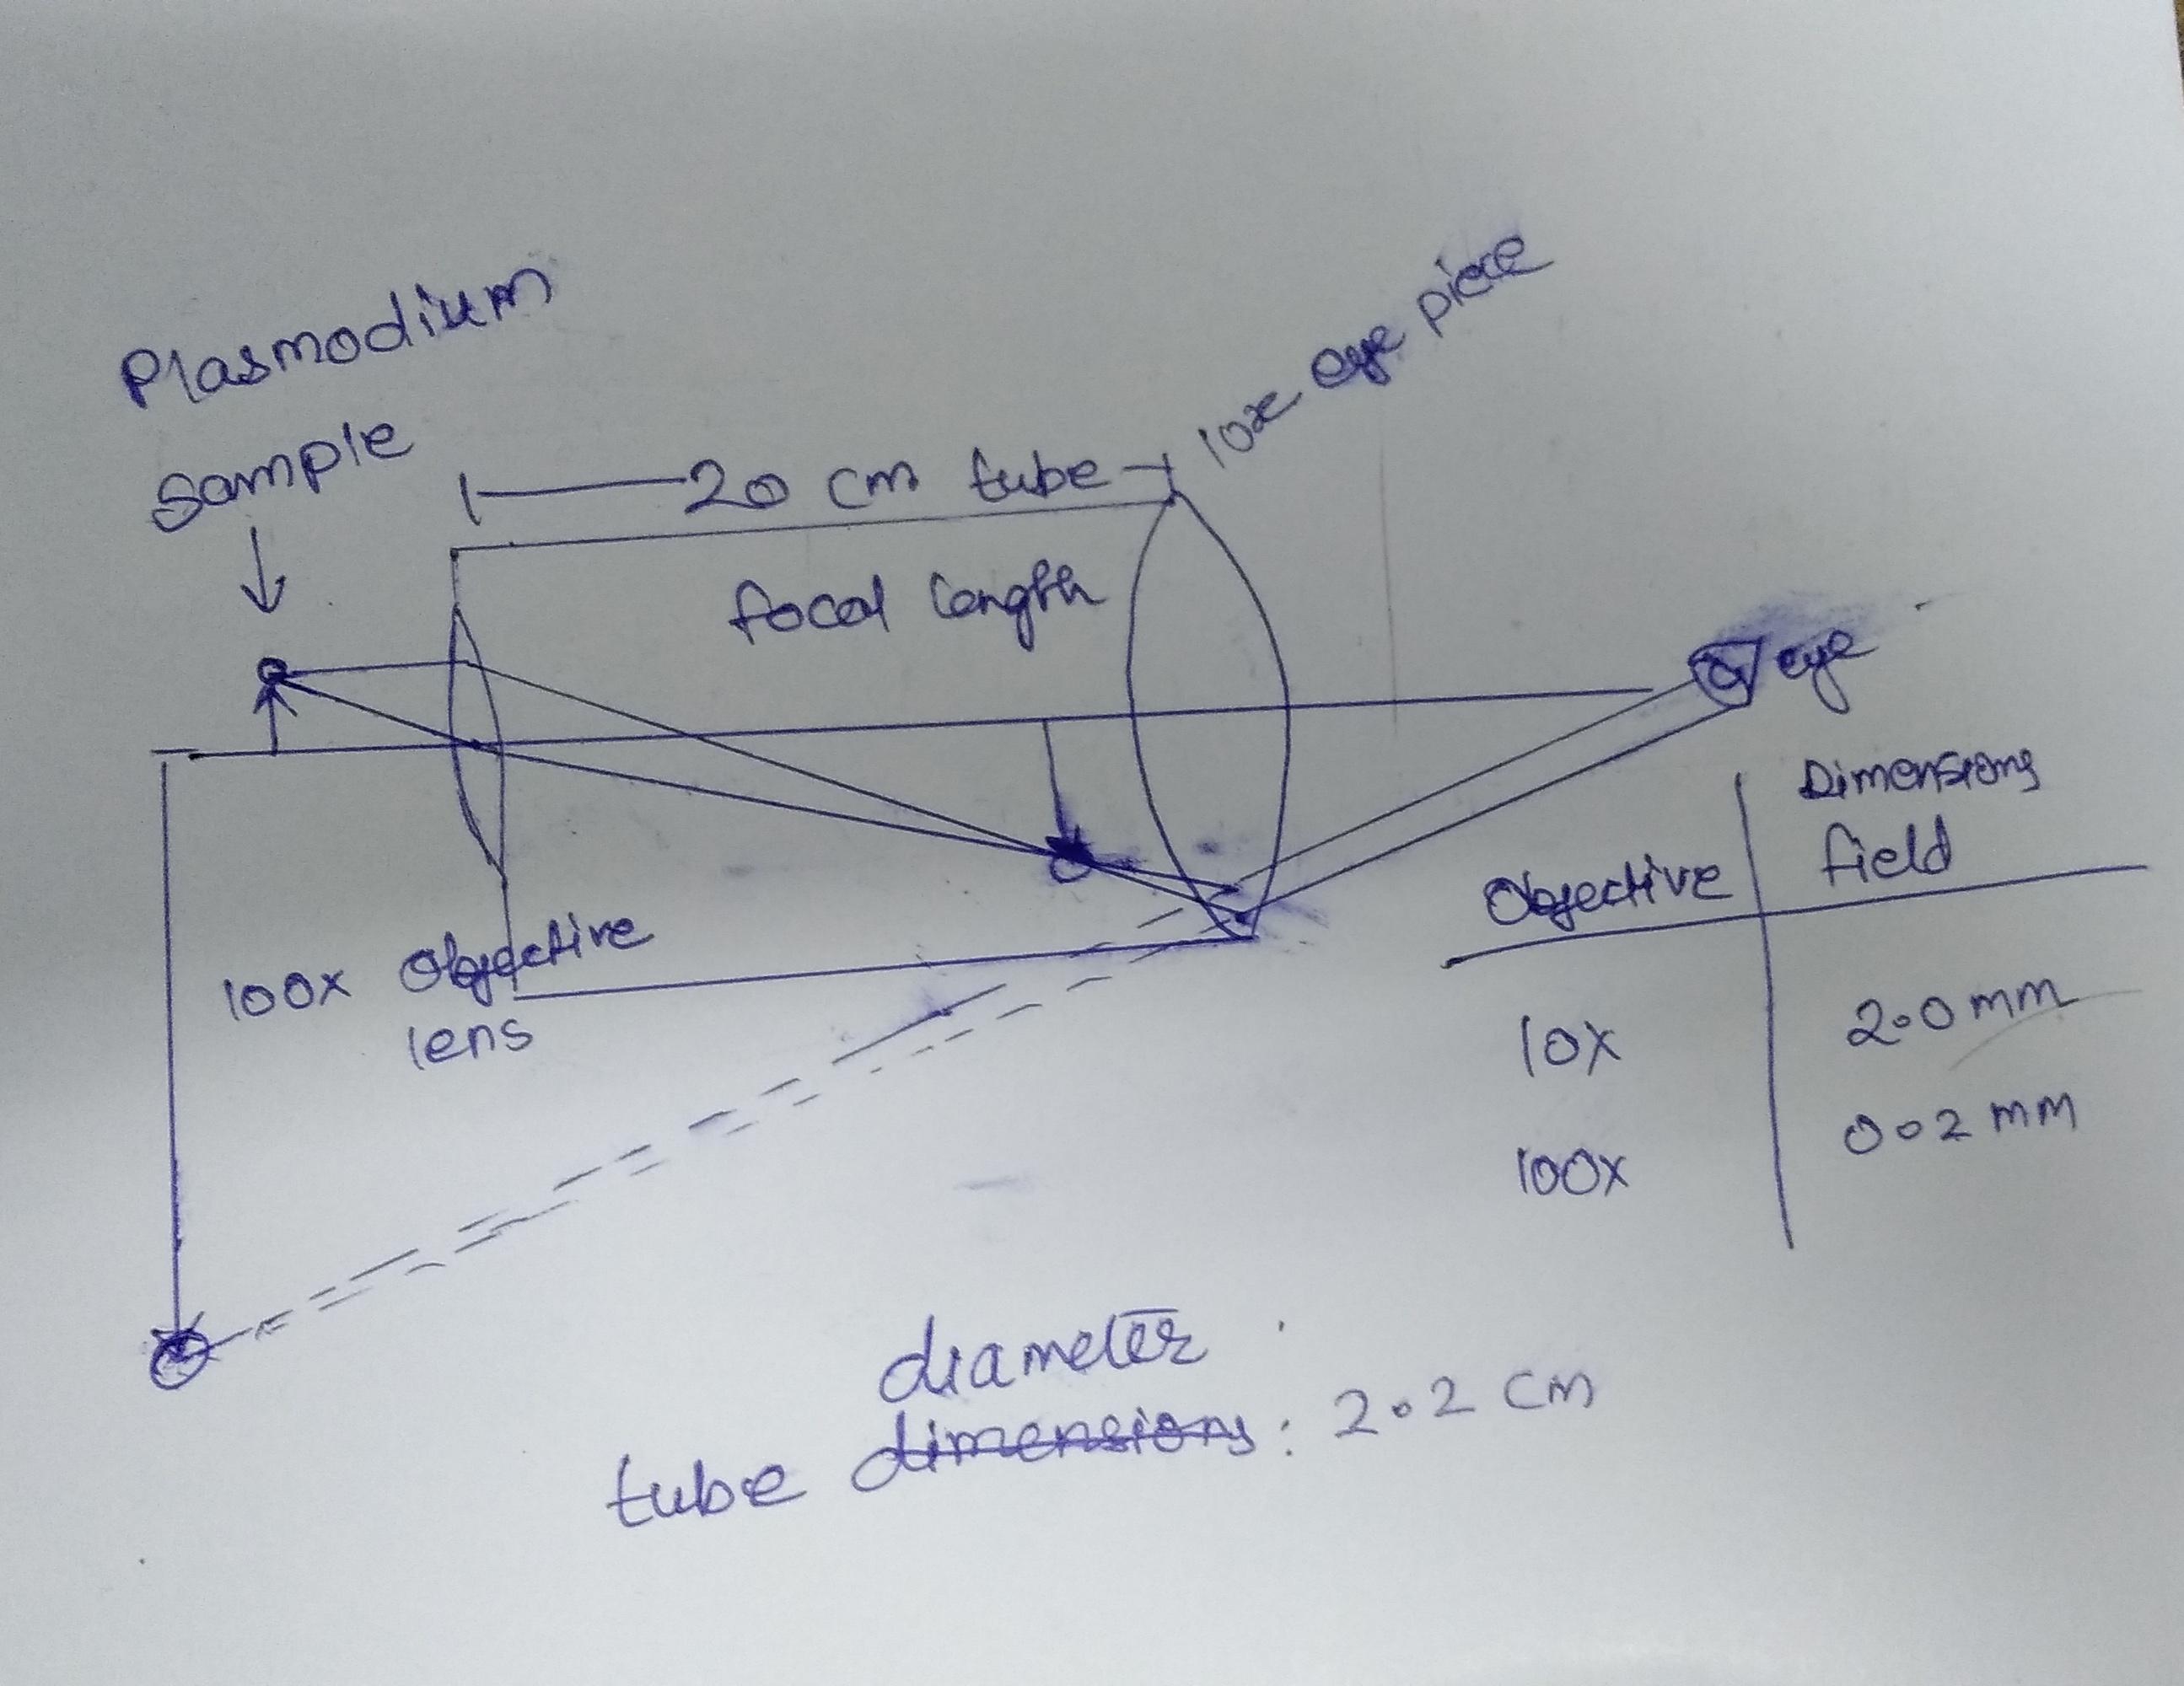 Plasmodium
sample
10x eye piece
20 cm tube
focal length
eye
100x Objective
lens
Objective
Dimensions
field
10x
2.0 mm
100x
0.2 mm
diameter
tube dimensions: 2.2 cm